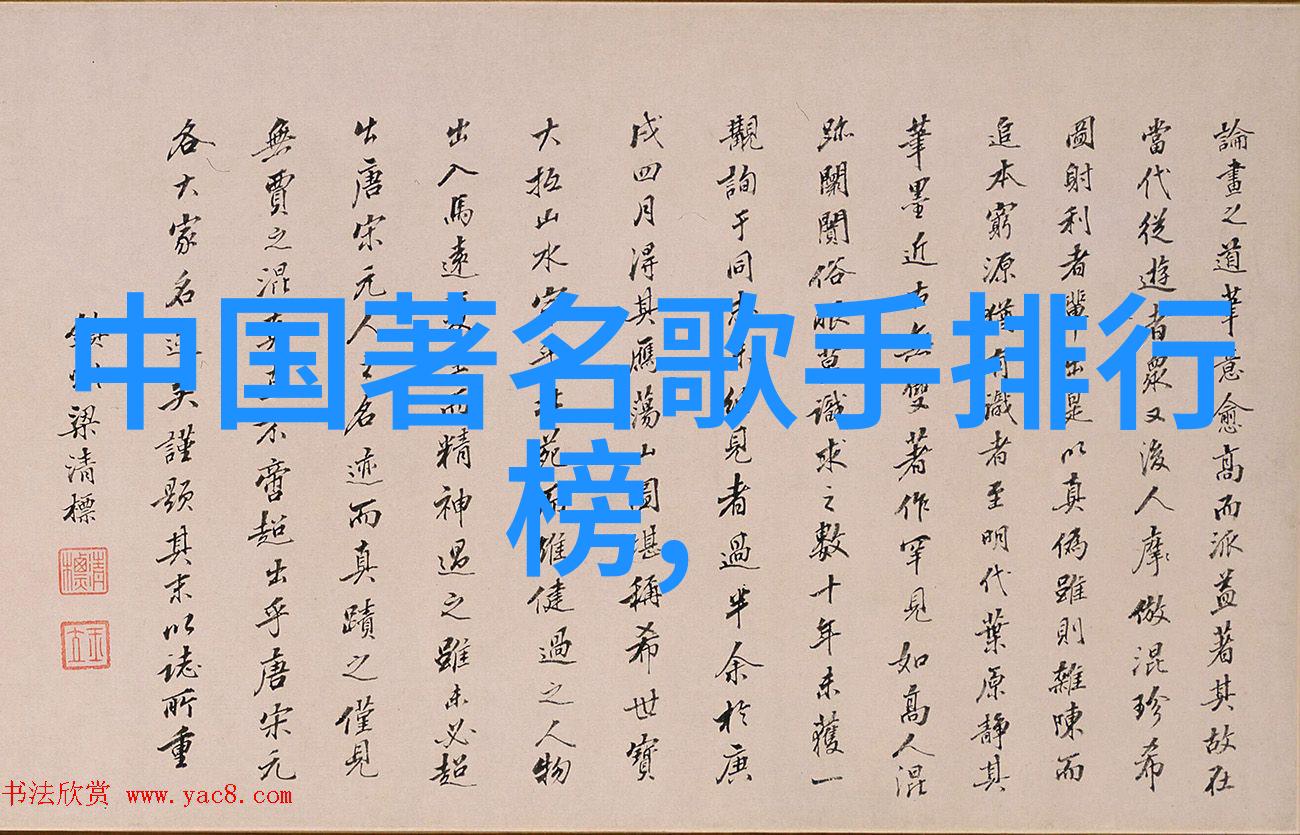 論畫之道筆意愈高而派益著其故在
當代從遊者眾又後人摩倣混珍希
圖射利者輩出是以真僞雖則雜陳而
追本窮源猶有識者至明代葉原靜其
筆墨近古無雙著作罕見如高人混
跡闤闠俗眼莫識求之數十年未獲一
觀詢于同未經見者過半余於庚
戌四月得其鴈蕩山圖堪稱希世寶
大抵山水維健過之人物
出入馬遠而精神過之雖未必超
出唐宋元人之名迹而真蹟之僅見
無賈之混不啻超出乎唐宋元
各大家名矣謹題其末以誌所重
梁清標
清標
中国著名歌手排行
榜,
书法欣赏 www.yac8.com